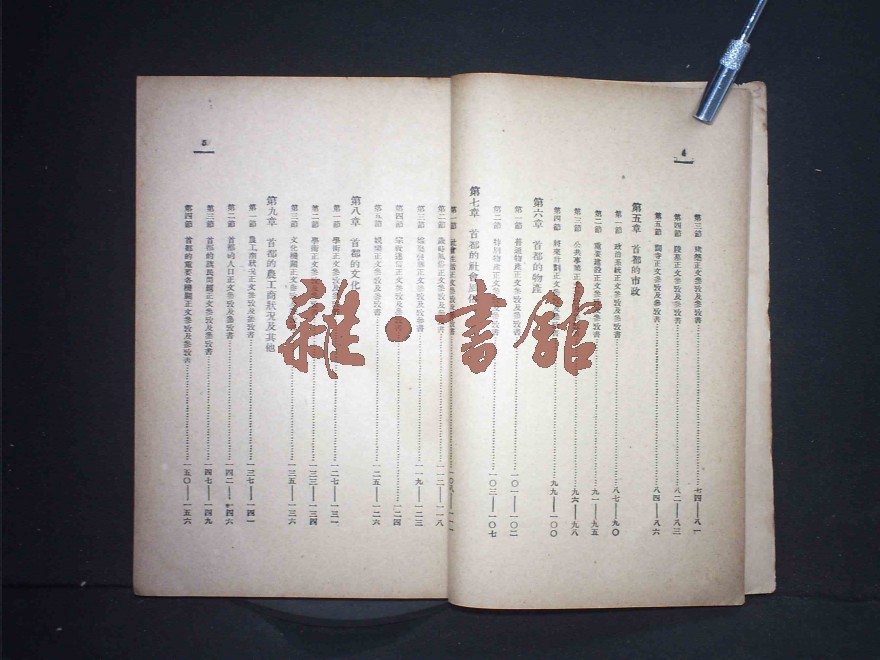 4
第三節 建築正文參攷及參攷書 七四——八一
第四節 陵墓正文參攷及參攷書 八二——八三
第五節 關寺正文參攷及參攷書 八四——八六
第五章 首都的市政
第一節 政治系統正文參攷及參攷書 八七——九〇
第二節 重要建設正文參攷及參攷書 九一——九五
第三節 公共事業正文 九六——九八
第四節 將來計劃正文參 九九——一〇〇
第六章 首都的物產
第一節 普通物產正文參攷及參攷書 一〇一——一〇二
第二節 特別物產正文參攷及參攷書 一〇三——一〇七
第七章 首都的社會
第一節 社會生活正文參攷 一〇八——一一一
第二節 歲時風俗正文參攷及參攷書 一一二——一一八
第三節 婚喪 正文參攷及參攷書 一一九——一二三
第四節 宗教迷信正文參攷及參攷書 一二四
第五節 娛樂正文參攷及參攷書 一二五——一二六
第八章 首都的文化
第一節 學術正文參攷 一二七——一三一
第二節 學術正文參攷 一三三——一三四
第三節 文化機關正文參攷及參攷書 一三五——一三六
第九章 首都的農工商狀況及其他
第一節 農工商狀況正文參攷及參攷書 一三七——一四一
第二節 首都的人口正文參攷及參攷書 一四二——一四六
第三節 首都的 民 正文參攷及參攷書 一四七——一四九
第四節 首都的重要各機關正文參攷及參攷書 一五〇——一五六
5
雜·書館